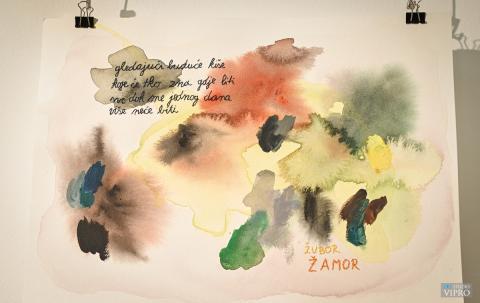 gledajući buduće kiše
koje će tko zna gdje liti
sve dok me jednog dana
više neće biti
ŽUBOR
ŽAMOR
STUDIO
VIPRO